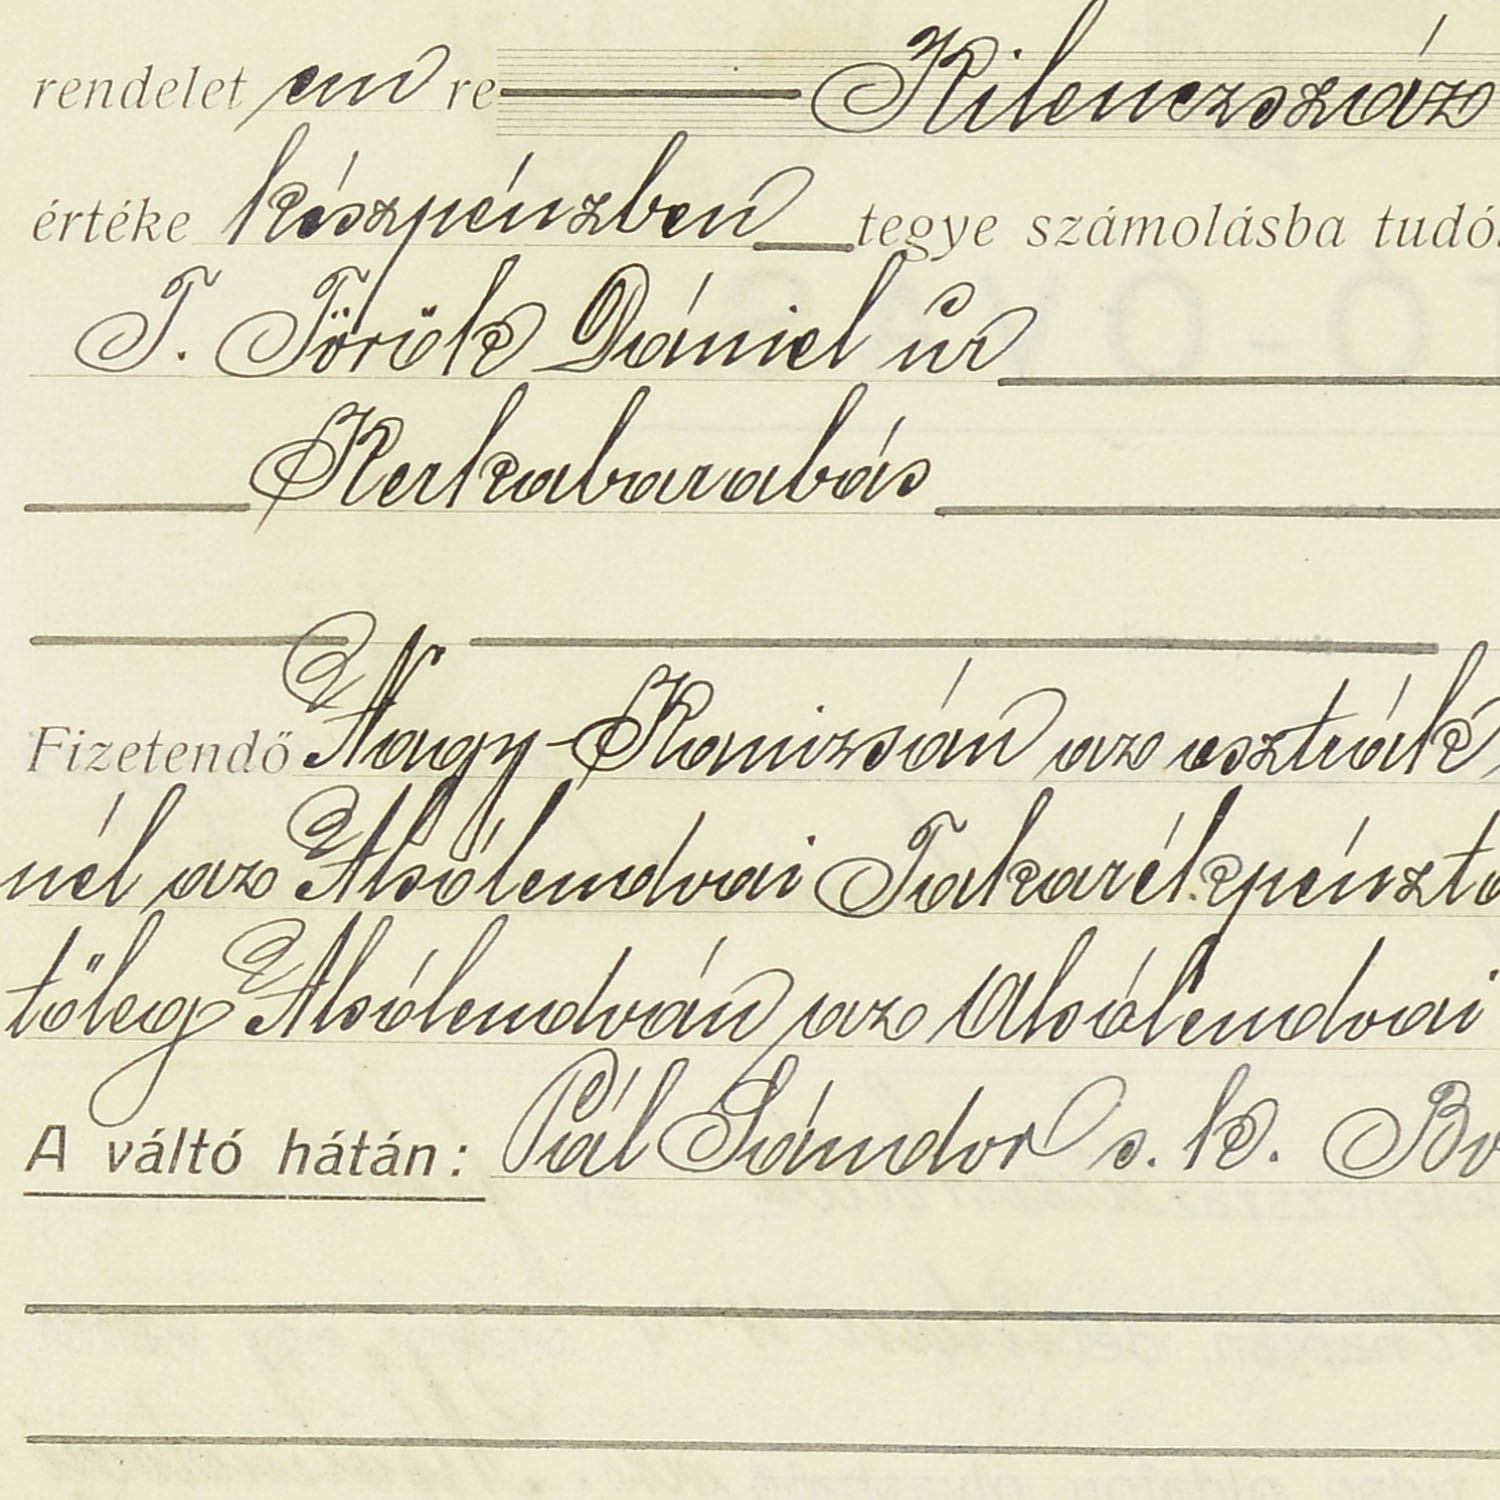 rendelet en re Kilenczszáz
értéke készpénzben tegye számolásba tudó
T. Török Dániel úr
Kerkabarabás
Fizetendő Nagy-Kanizsán az osztrák
nél az Alsólendvai Takarékpénztá
tőleg Alsólendván az Alsólendvai
A váltó hátán: Pál Sándor s. k. Bo